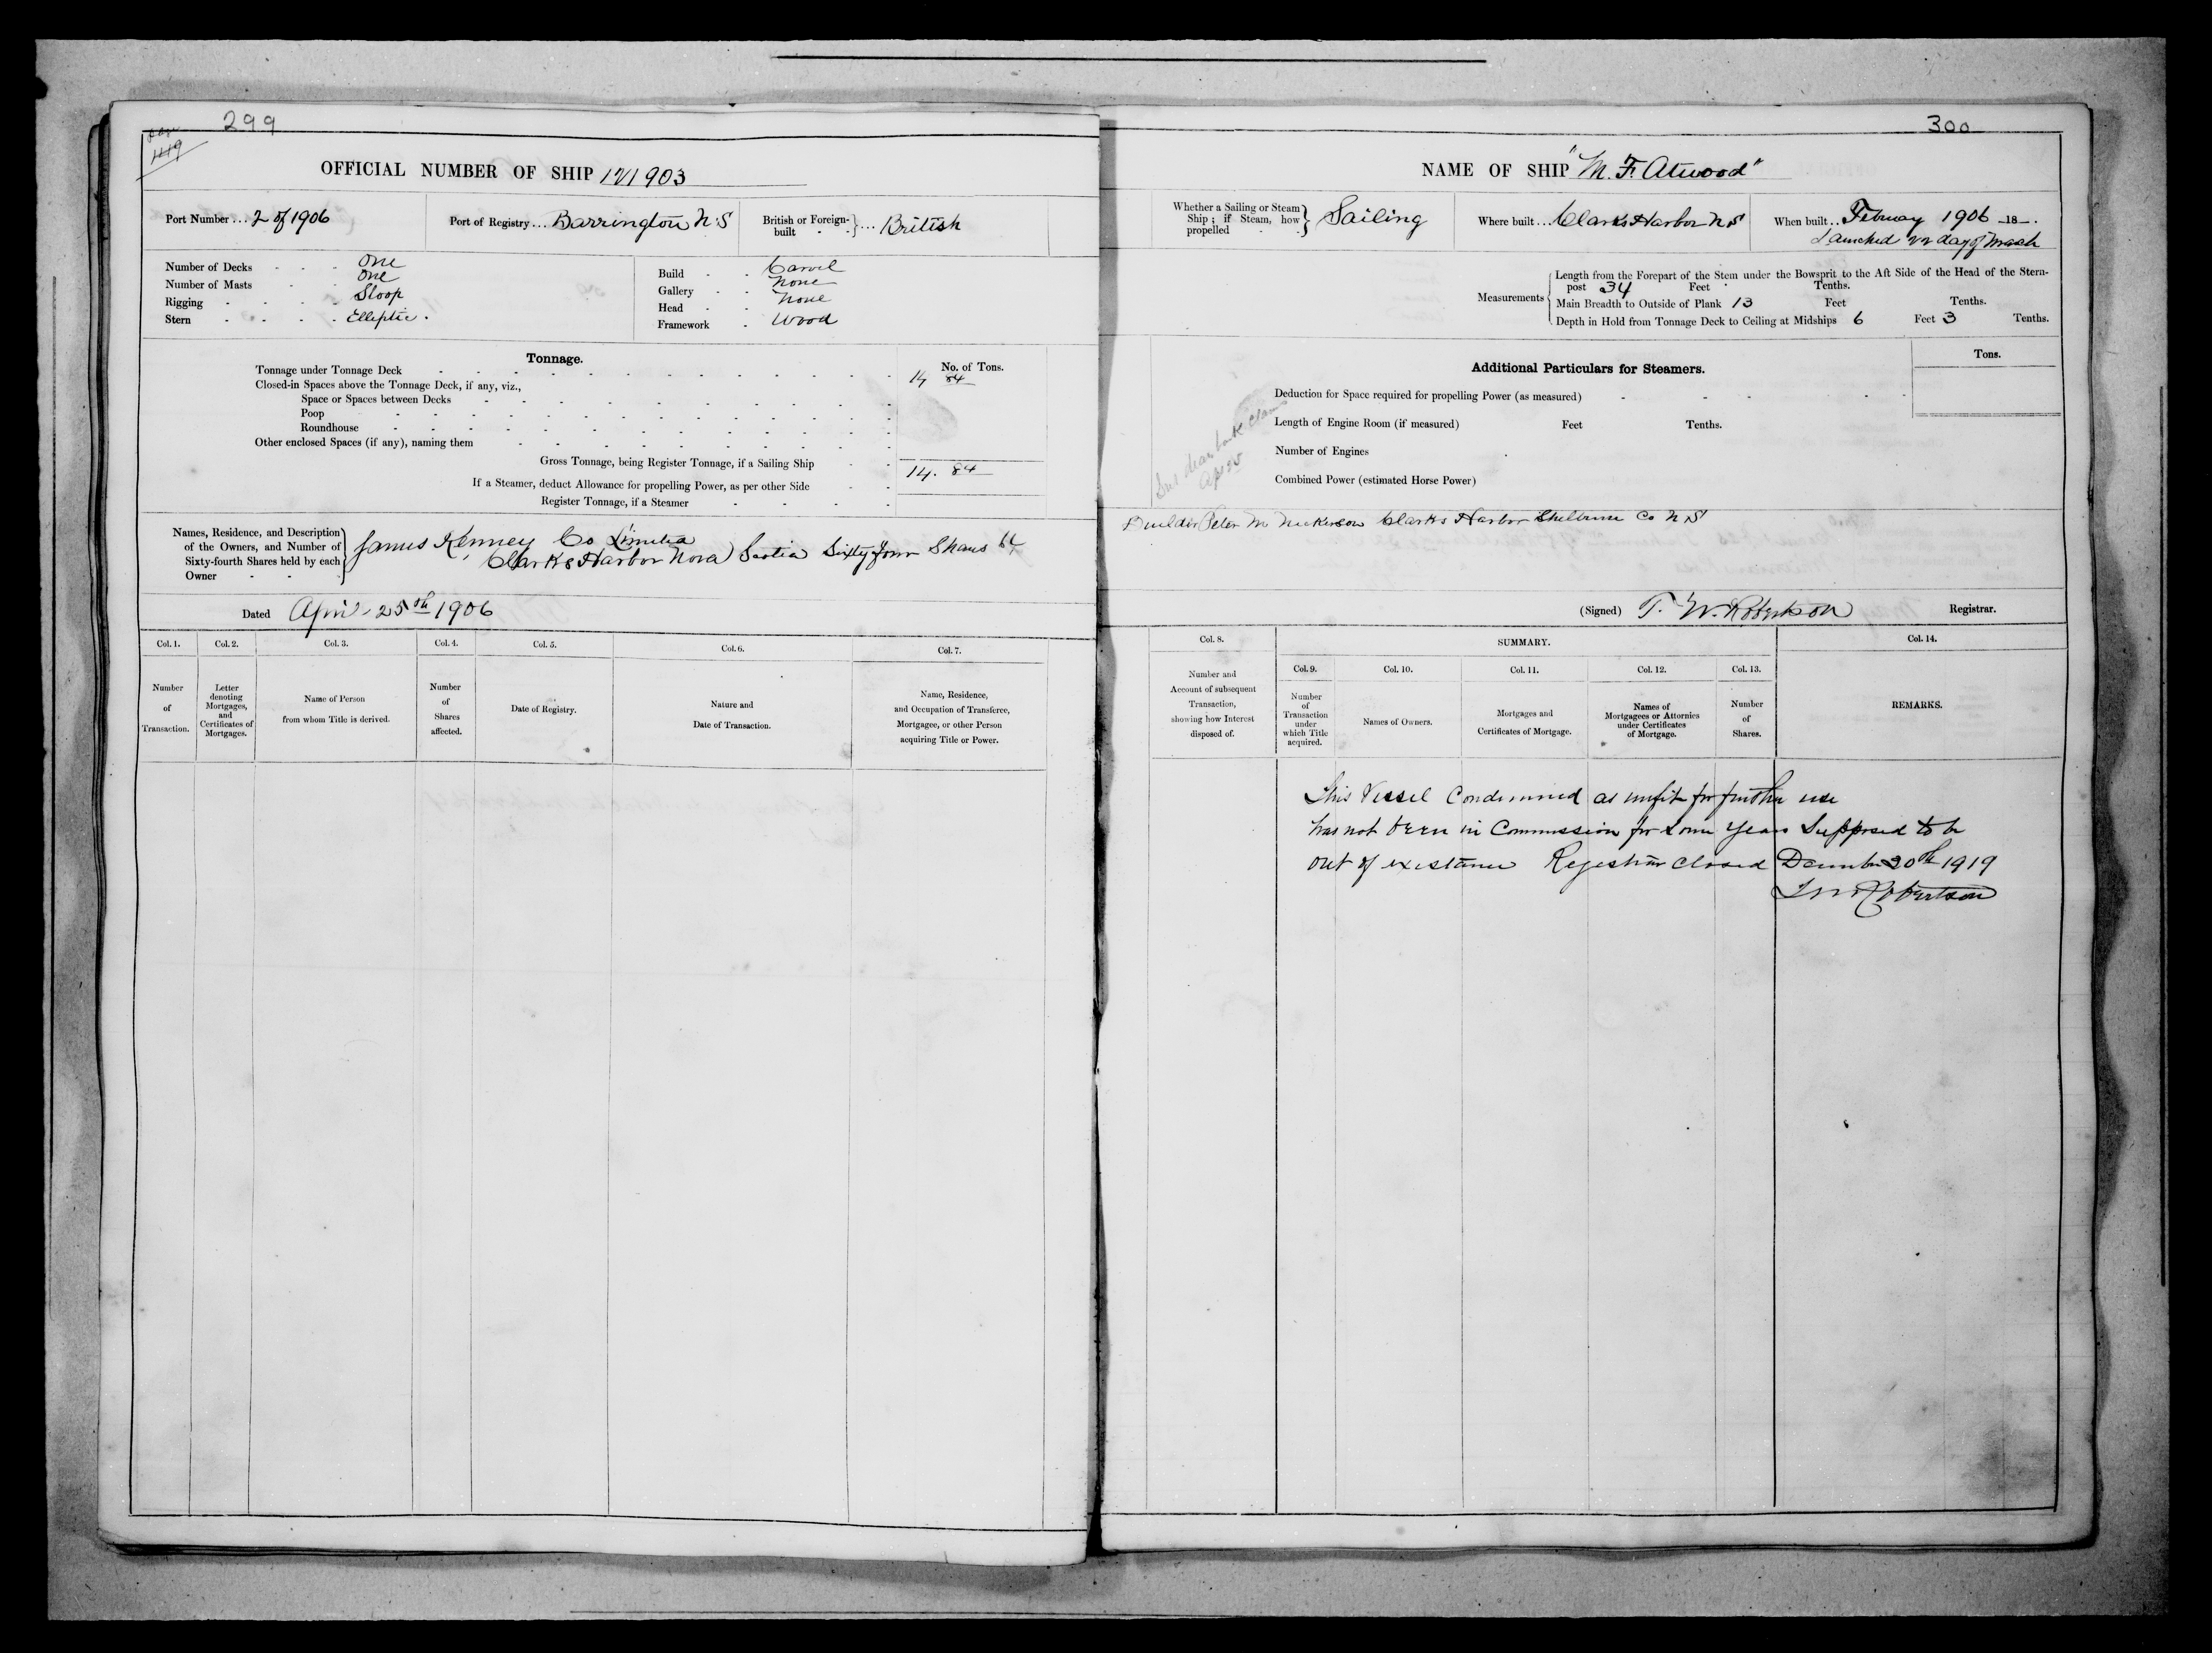 299
page
1419
OFFICIAL NUMBER OF SHIP 121903
Port Number... 2 of 1906
Port of Registry... Barrington N.S
British or Foreign-built } ... British
Number of Decks One
Number of Masts One
Rigging Sloop
Stern Elliptic.
Build Carvel
Gallery None
Head None
Framework Wood
Tonnage.
No. of Tons.
Tonnage under Tonnage Deck 14 84
Closed-in Spaces above the Tonnage Deck, if any, viz.,
Space or Spaces between Decks
Poop
Roundhouse
Other enclosed Spaces (if any), naming them
Gross Tonnage, being Register Tonnage, if a Sailing Ship 14. 84
If a Steamer, deduct Allowance for propelling Power, as per other Side
Register Tonnage, if a Steamer
Names, Residence, and Description
of the Owners, and Number of
Sixty-fourth Shares held by each
Owner
James Kenney Co Limited
Clarks Harbor Nova Scotia Sixty four Shares 64
Dated April 25th 1906
Col. 1. Col. 2. Col. 3. Col. 4. Col. 5. Col. 6. Col. 7.
Number of Transaction.
Letter denoting Mortgages, and Certificates of Mortgages.
Name of Person from whom Title is derived.
Number of Shares affected.
Date of Registry.
Nature and Date of Transaction.
Name, Residence, and Occupation of Transferee, Mortgagee, or other Person acquiring Title or Power.
300
NAME OF SHIP "M. F. Atwood"
Whether a Sailing or Steam Ship; if Steam, how propelled } Sailing
Where built... Clarks Harbor N S
When built... Februay 1906 -18-.
Launched 22 day of March
Measurements
Length from the Forepart of the Stem under the Bowsprit to the Aft Side of the Head of the Stern-
post 34 Feet Tenths.
Main Breadth to Outside of Plank 13 Feet Tenths.
Depth in Hold from Tonnage Deck to Ceiling at Midships 6 Feet 3 Tenths.
Additional Particulars for Steamers.
Tons.
Deduction for Space required for propelling Power (as measured)
Length of Engine Room (if measured) Feet Tenths.
Number of Engines
Combined Power (estimated Horse Power)
Builder Peter M Nickerson Clarks Harbor Shelburne Co N S
(Signed) T. W. Robertson Registrar.
Col. 8.
SUMMARY.
Col. 14.
Col. 9. Col. 10. Col. 11. Col. 12. Col. 13.
Number and Account of subsequent Transaction, showing how Interest disposed of.
Number of Transaction under which Title acquired.
Names of Owners.
Mortgages and Certificates of Mortgage.
Names of Mortgagees or Attornies under Certificates of Mortgage.
Number of Shares.
REMARKS.
This Vessel Condemned as unfit for further use
has not been in Commission for some years Supposed to be
out of existance Regestrar closed December 20th 1919
T W Robertson